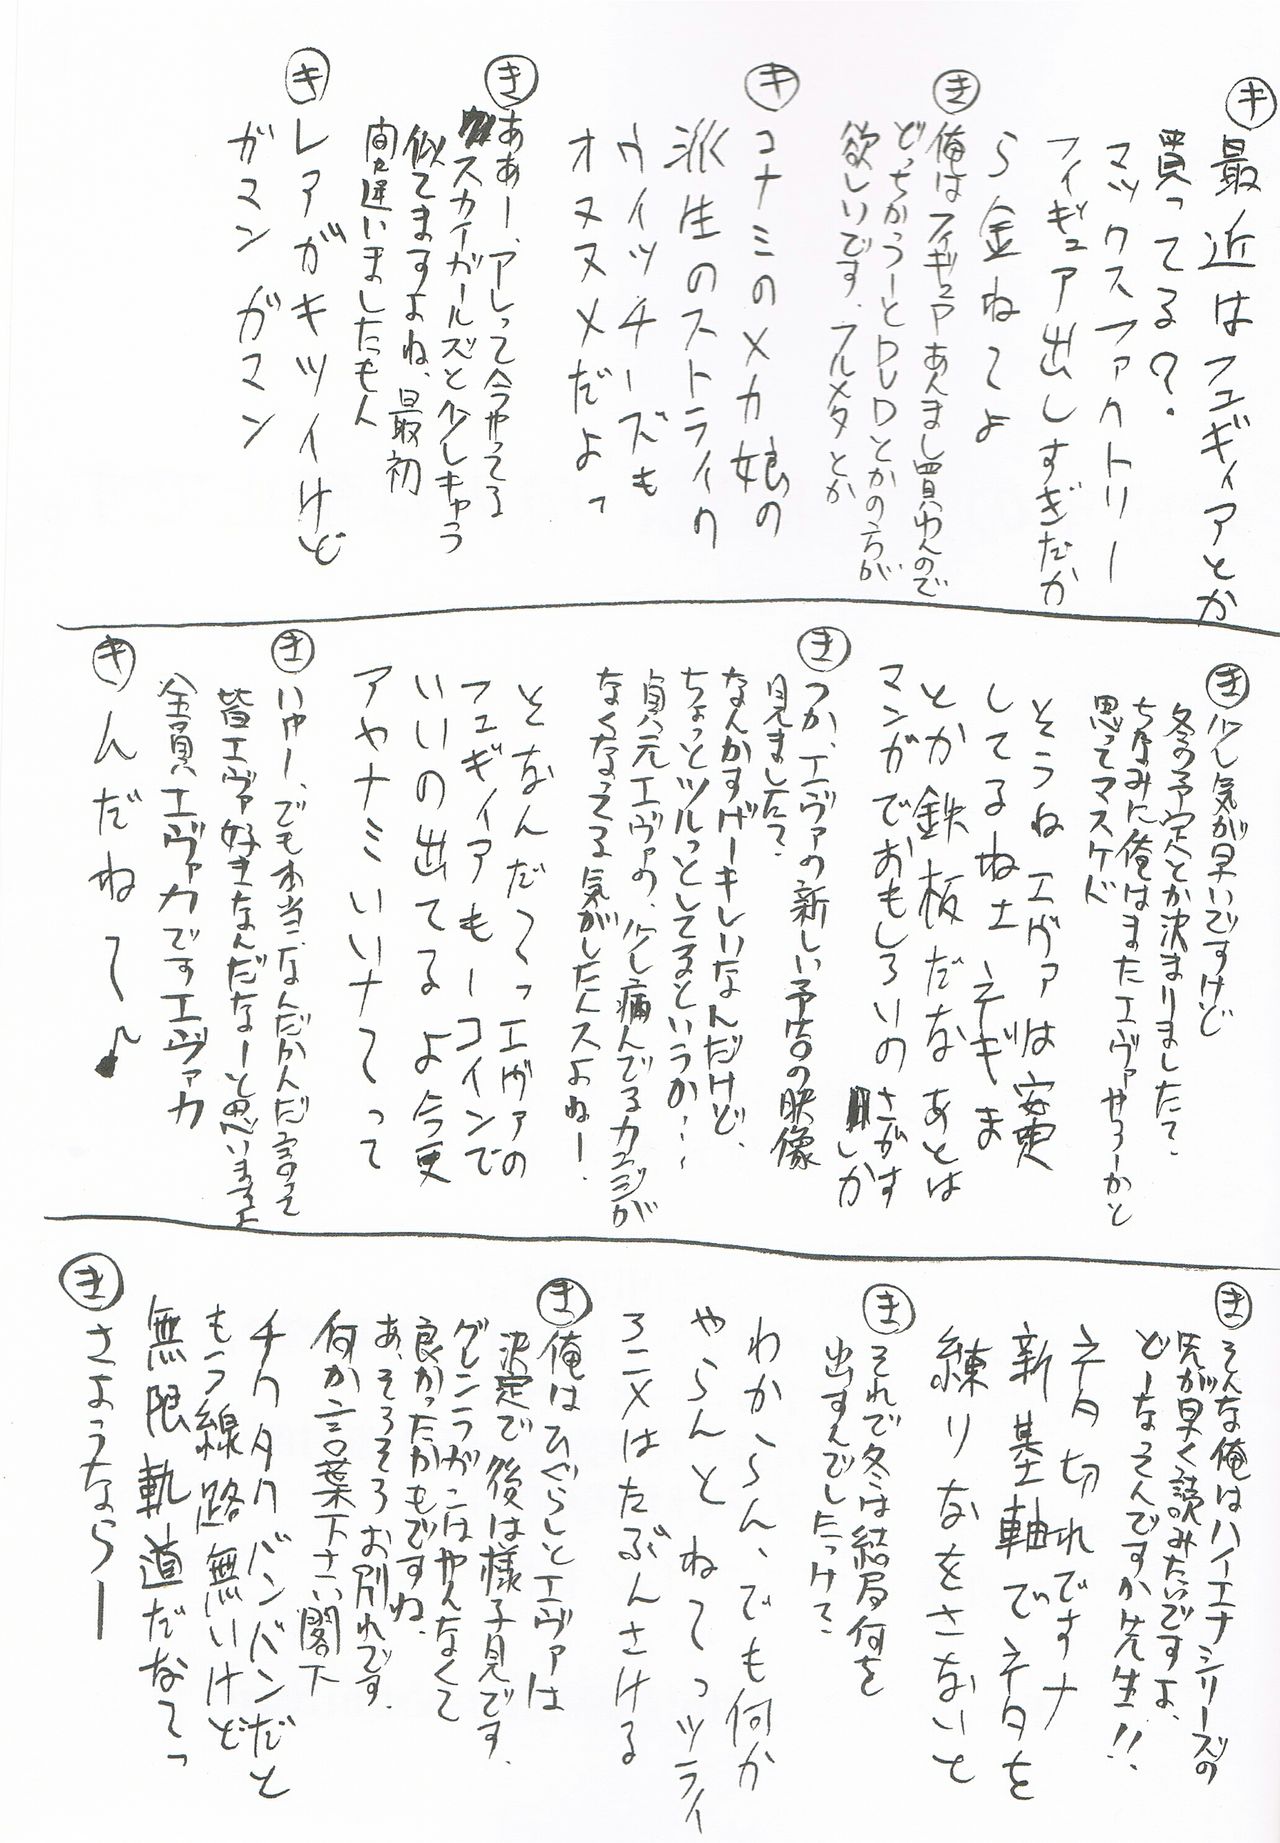 キ 最近はフュギィアとか
買ってる?
マックスファクトリー
フィギュア出しすぎだか
ら金ねてよ
き 俺はフィギュアあんまし買わんので
どっちかつーとDVDとかの方が
欲しいです。フルメタとか
キ コナミのメカ娘の
派生のストライク
ウィッチーズも
オヌヌメだよっ
き ああー、アレって今やってる
スカイガールズと少しキャラ
似てますよね、最初
間違いましたもん
キ レアがキツイけど
ガマンガマン
き 少し気が早いですけど
冬の予定とか決まりました?
ちなみに俺はまたエヴァやろーかと
思ってマスケド
そうねエヴァは安定
してるねェ ネギま
とか鉄板だなあとは
マンガでおもしろいのさがす
しか
き つか、エヴァの新しい予告の映像
見ました?
なんかすげーキレイなんだけど、
ちょっとツルっとしてるというか・・・
貞元エヴァの、少し病んでるカンジが
なくなってる気がしたんスよねー!
となんだーっエヴァの
フュギィアもーコインで
いいの出てるよ今更
アヤナミいいナてって
き いやー、でも本当、なんだかんだ言って
皆エヴァ好きなんだなーと思いますよ
全員エヴァカですエヴァカ
キ んだねて〜♪
き そんな俺はハイエナシリーズの
先が早く読みたいですよ、
どーなそんですか先生!!
ネタ切れですナ
新基軸でネタを
練りなをさないと
き それで冬は結局何を
出すんでしたっけ?
わからん、でも何か
やらんとねてっツライ
ろニメはたぶんさける
き 俺はひぐらしとエヴァは
決定で後は様子見です、
グレンラガンはやんなくて
良かったかもですね、
あ、そろそろお別れです、
何か言葉下さい閣下
チクタクバンバンだと
もう線路無いけど
無限軌道だなてっ
き さようならー